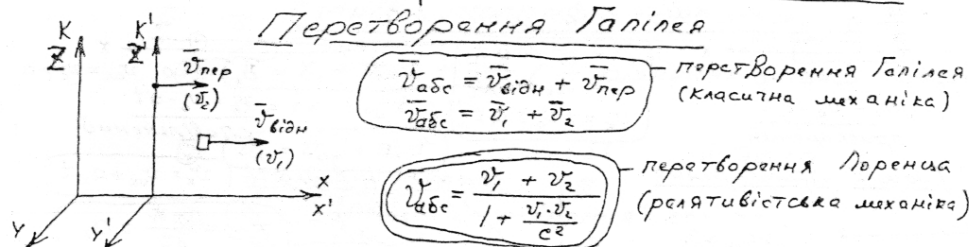 Перетворення Галілея
K K'
Z Z'
v̅пер
(v̅₂)
v̅відн
(v̅₁)
X
X'
Y Y'
v̅абс = v̅відн + v̅пер
v̅абс = v̅₁ + v̅₂
перетворення Галілея
(класична механіка)
vабс = (v₁ + v₂) / (1 + v₁·v₂/c²)
перетворення Лоренца
(релятивістська механіка)